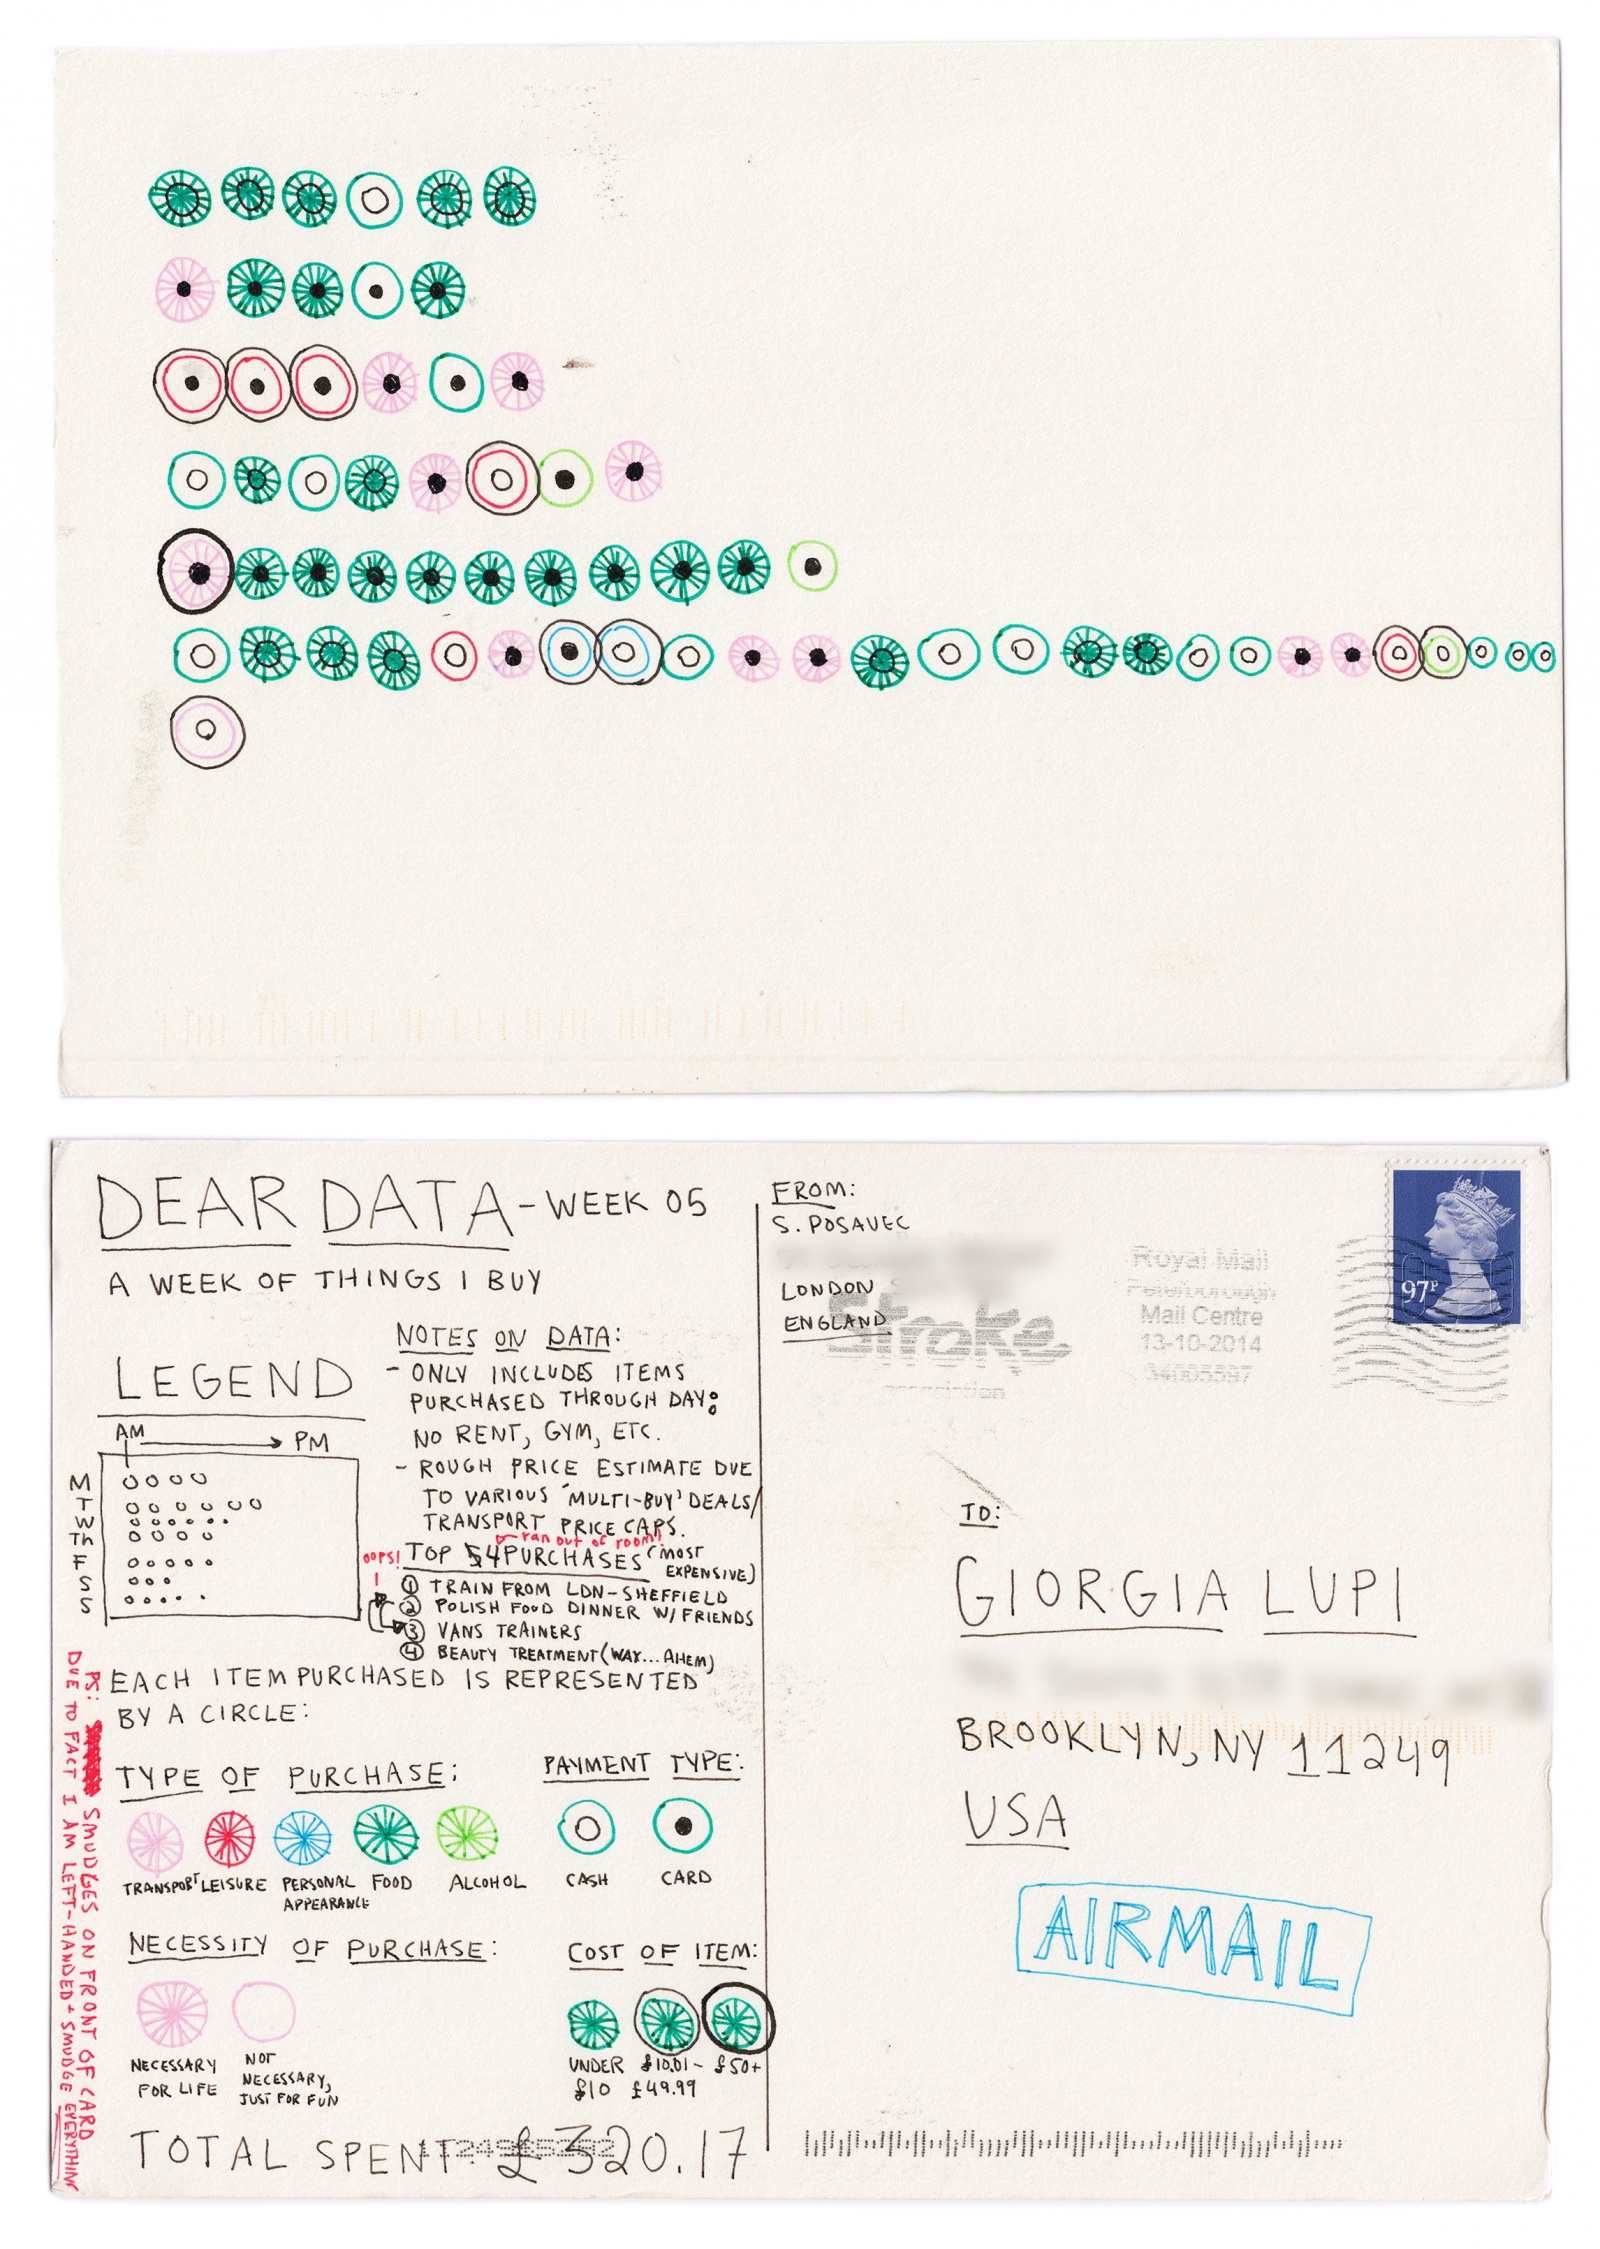 DEAR DATA - WEEK 05
A WEEK OF THINGS I BUY
LEGEND
AM → PM
M
T
W
Th
F
S
S
NOTES ON DATA:
- ONLY INCLUDES ITEMS
PURCHASED THROUGH DAY:
NO RENT, GYM, ETC.
- ROUGH PRICE ESTIMATE DUE
TO VARIOUS 'MULTI-BUY' DEALS/
TRANSPORT PRICE CAPS.
ran out of room!
OOPS!
TOP 4 PURCHASES (MOST
EXPENSIVE)
1 TRAIN FROM LDN-SHEFFIELD
2 POLISH FOOD DINNER W/ FRIENDS
3 VANS TRAINERS
4 BEAUTY TREATMENT (WAX... AHEM)
EACH ITEM PURCHASED IS REPRESENTED
BY A CIRCLE:
TYPE OF PURCHASE:
TRANSPORT LEISURE PERSONAL FOOD ALCOHOL
APPEARANCE
PAYMENT TYPE:
CASH CARD
NECESSITY OF PURCHASE:
NECESSARY
FOR LIFE
NOT
NECESSARY,
JUST FOR FUN
COST OF ITEM:
UNDER £10.01- £50+
£10 £49.99
TOTAL SPENT: £320.17
PS: SMUDGES ON FRONT OF CARD
DUE TO FACT I AM LEFT-HANDED + SMUDGE EVERYTHING
FROM:
S. POSAVEC
LONDON
ENGLAND
Stroke
Royal Mail
Peterborough
Mail Centre
13-10-2014
97P
TO:
GIORGIA LUPI
BROOKLYN, NY 11249
USA
AIRMAIL